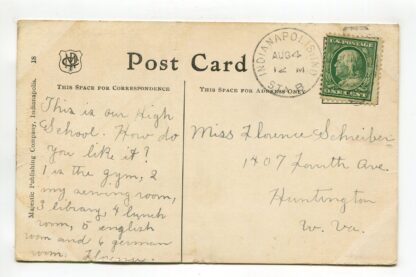 Post Card
THIS SPACE FOR CORRESPONDENCE
THIS SPACE FOR ADDRESS ONLY
18
Majestic Publishing Company, Indianapolis.
INDIANAPOLIS, IND.
AUG
12 M
U.S. POSTAGE
ONE CENT
This is our High
School. How do
you like it?
1 is the gym, 2
my sewing room,
3 library, 4 lunch
room, 5 english
room and 6 german
room. Florence.
Miss Florence Schreiber
1407 Fourth Ave.
Huntington
W. Va.